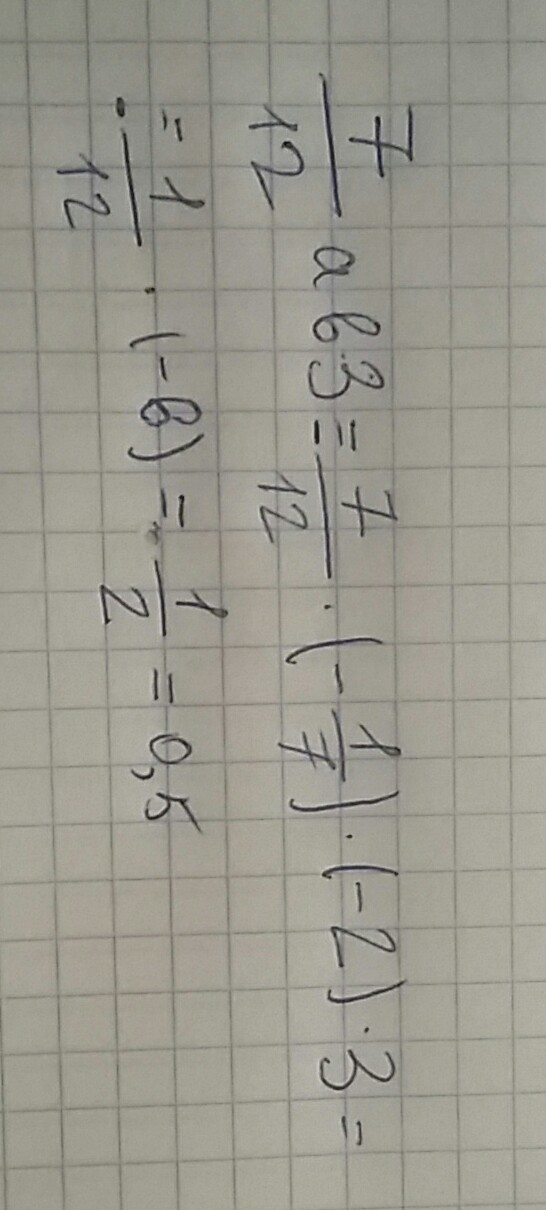 7/12 ab3 = 7/12 · (-1/7) · (-2) · 3 =
= -1/12 · (-6) = 1/2 = 0,5